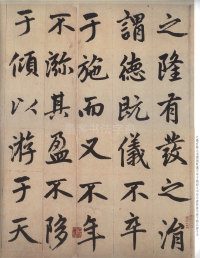 之隆有發之消
謂德既儀不卒
于施而又不年
不㳽其盈不陊
于傾以游于天